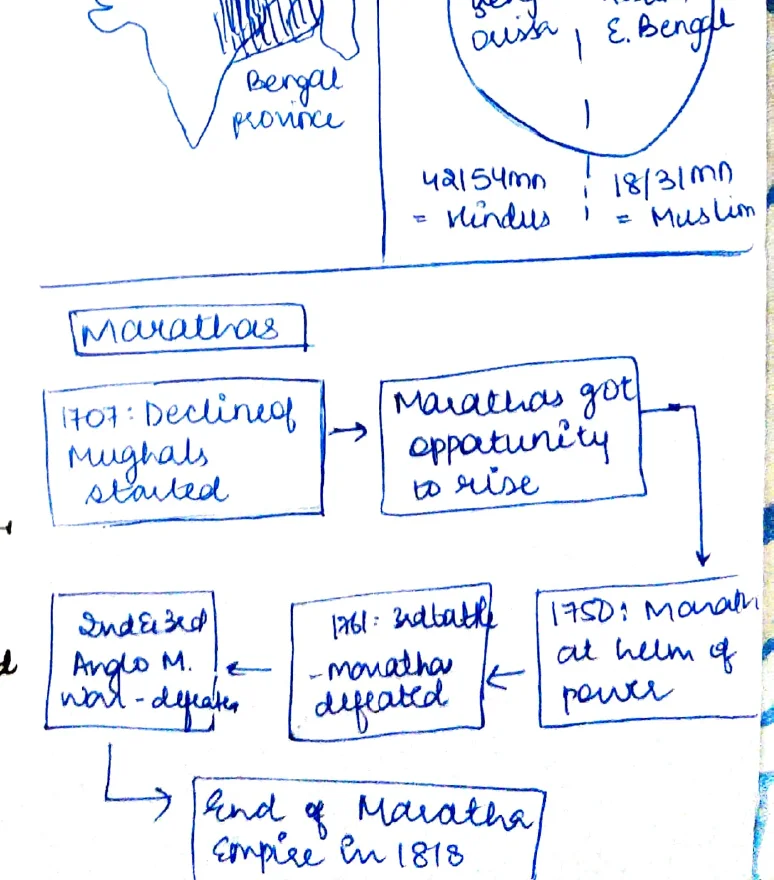 Bengal
province
Orissa
E. Bengal
42/54mn
= Hindus
18/31mn
= Muslim
Marathas
1707: Decline of
Mughals
started
Marathas got
oppatunity
to rise
1750: Marath
at helm of
power
1761: 3rd battle
- maratha
defeated
2nd & 3rd
Anglo M.
War - defeated
End of Maratha
Empire in 1818